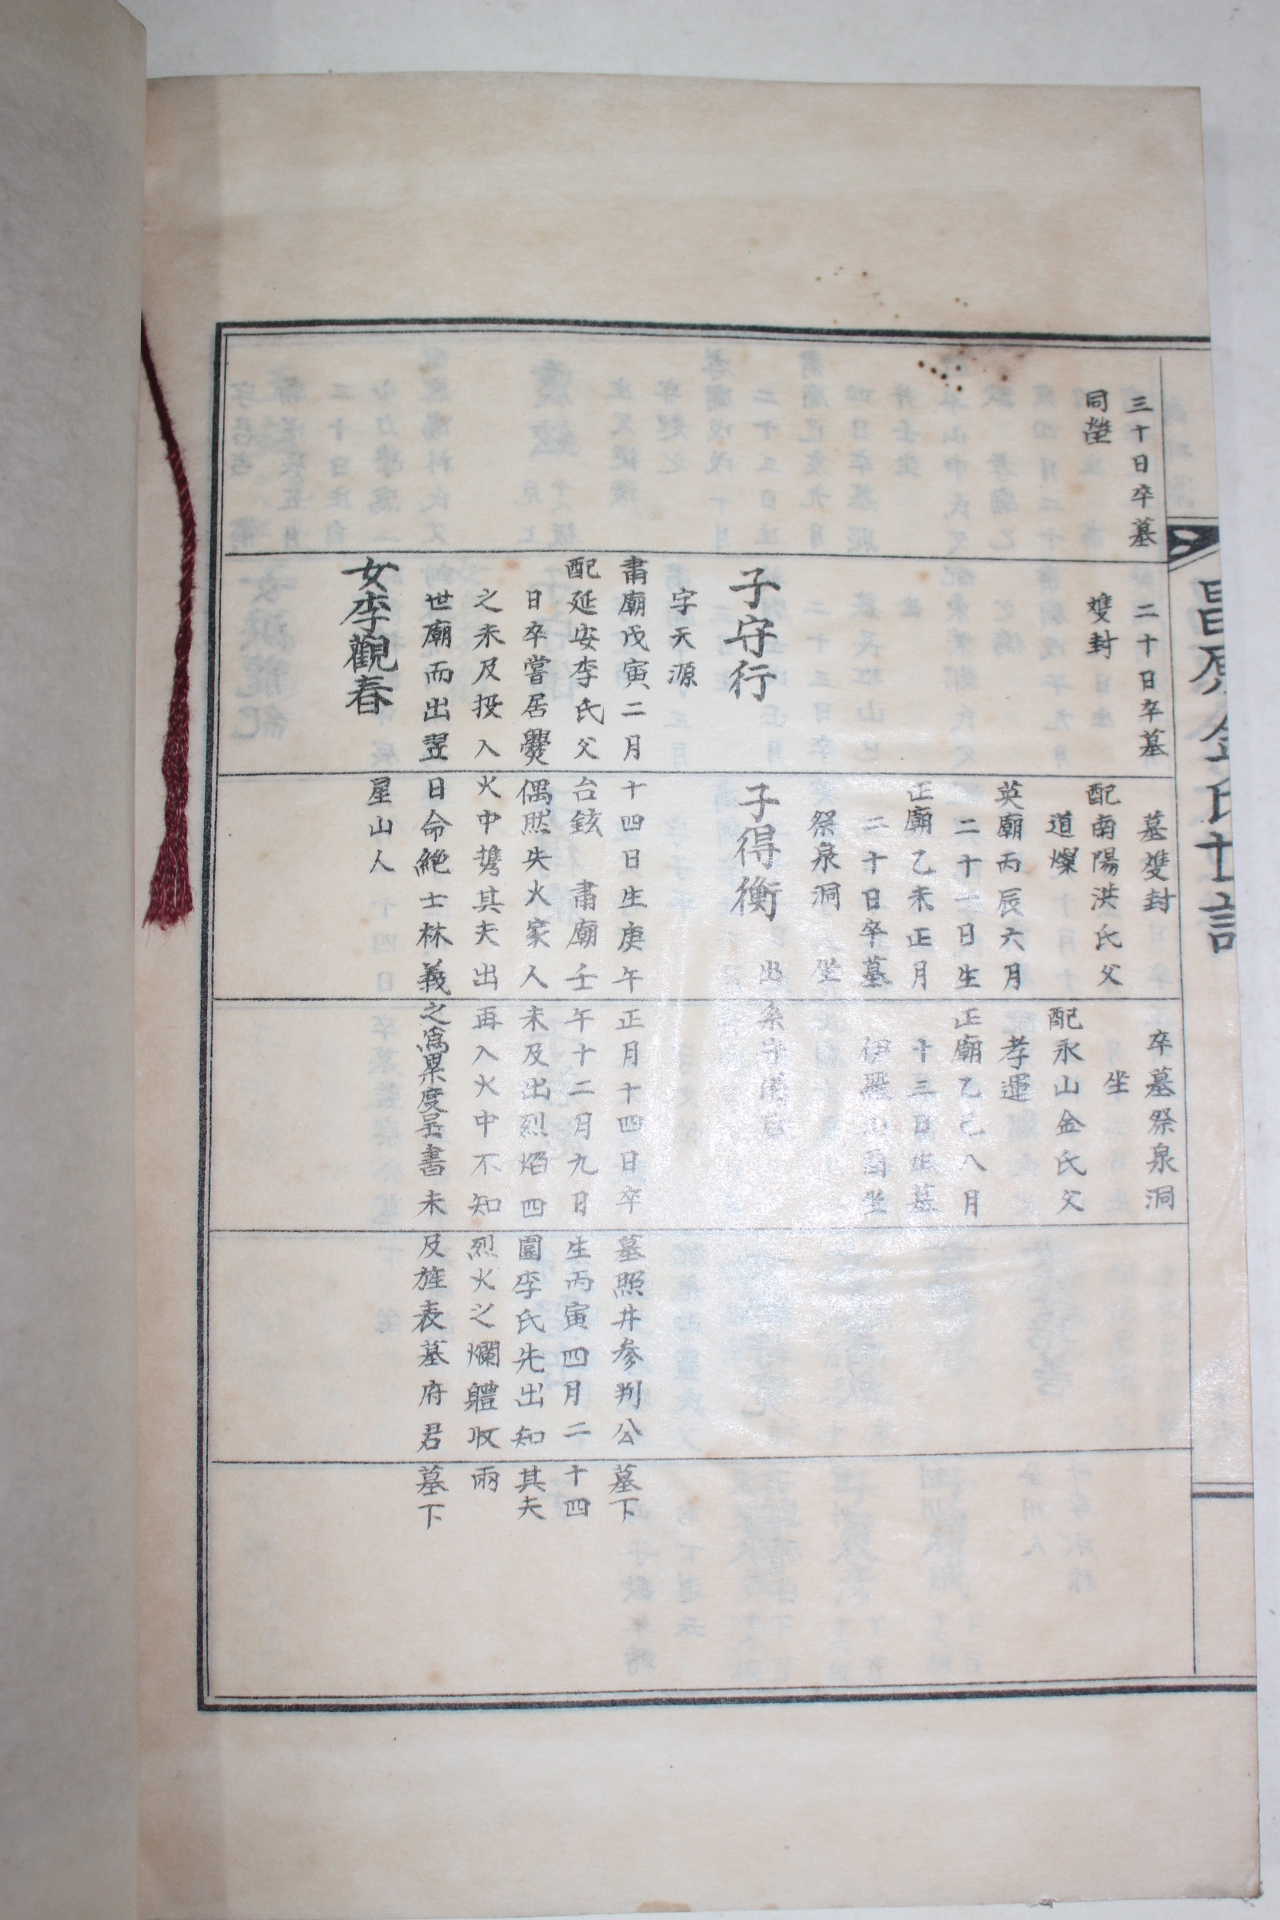 昌原金氏世譜
三十日卒墓
同塋
二十日卒墓
雙封
墓雙封
配南陽洪氏父
道燦
英廟丙辰六月
二十一日生
正廟乙未正月
二十日卒墓
祭泉洞 坐
卒墓祭泉洞
坐
配永山金氏父
孝運
正廟乙巳八月
十三日生墓
伊雁 酉坐
子守行
子得衡 出系守
字天源
肅廟戊寅二月十四日生庚午正月十四日卒墓照井參判公墓下
配延安李氏父台鉉 肅廟壬午十二月九日生丙寅四月二十四
日卒嘗居爨偶然失火家人未及出烈焰四圍李氏先出知其夫
之未及投入火中携其夫出再入火中不知烈火之爛軆收兩
世廟而出翌日命絶士林義之爲累度呈書未及旌表墓府君墓下
女李觀春 星山人